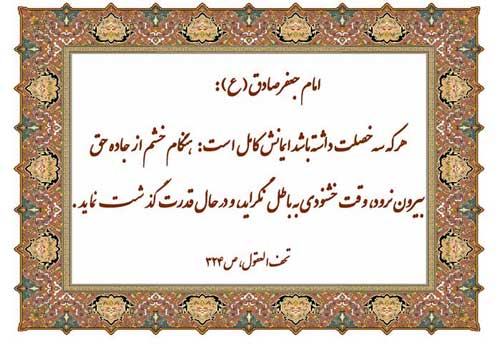 امام جعفر صادق (ع):
هر که سه خصلت داشته باشد ایمانش کامل است: هنگام خشم از جاده حق
بیرون نرود، وقت خشنودی به باطل نگراید، و در حال قدرت گذشت نماید.
تحف العقول، ص ۳۲۴